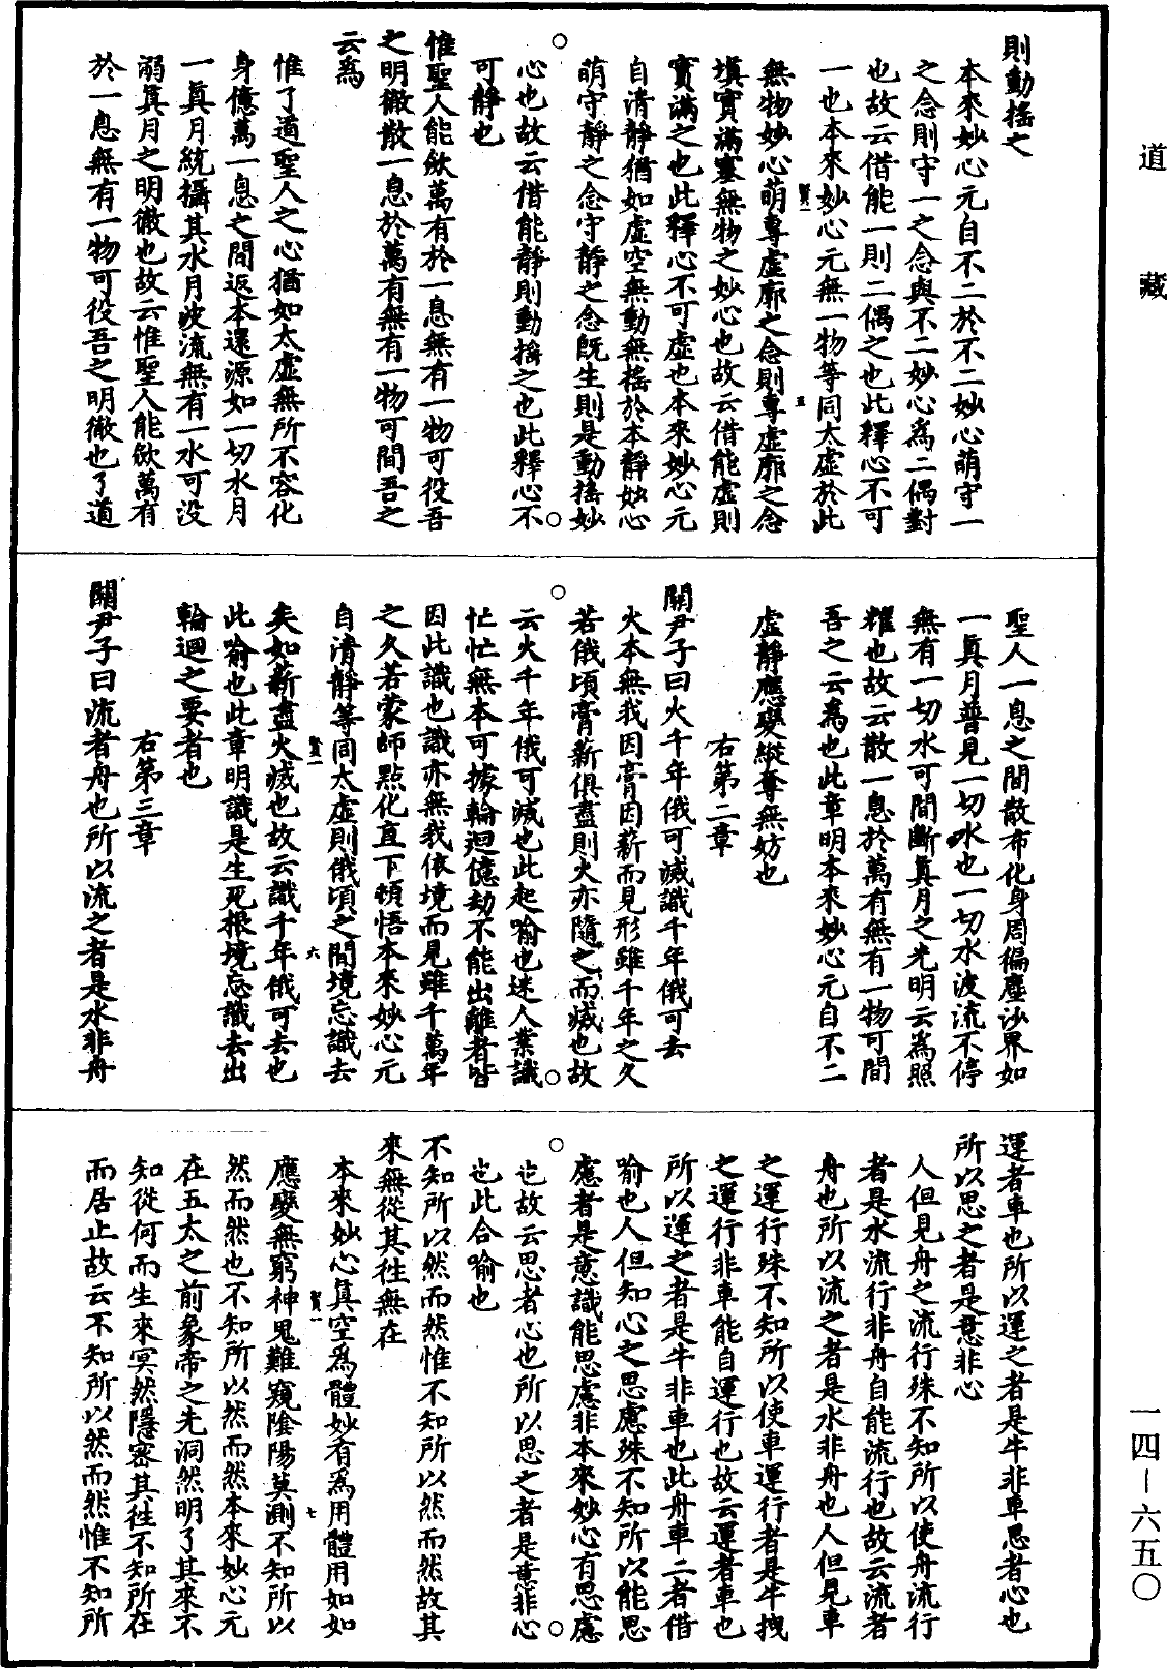 道藏
則動搖之
本來妙心元自不二於不二妙心萌守一
之念則守一之念與不二妙心爲二偶對
也故云借能一則二偶之也此釋心不可
一也本來妙心元無一物等同太虛於此
無物妙心萌專虛廓之念則專虛廓之念
填實滿塞無物之妙心也故云借能虛則
實滿之也此釋心不可虛也本來妙心元
自清靜猶如虛空無動無搖於本靜妙心
萌守靜之念守靜之念旣生則是動搖妙
心也故云借能靜則動搖之也此釋心不
可靜也
惟聖人能斂萬有於一息無有一物可役吾
之明徹散一息於萬有無有一物可間吾之
云爲
惟了道聖人之心猶如太虛無所不容化
身億萬一息之間返本還源如一切水月
一眞月統攝其水月波流無有一水可没
溺眞月之明徹也故云惟聖人能斂萬有
於一息無有一物可役吾之明徹也了道
聖人一息之間散布化身周徧塵沙界如
一眞月普見一切水也一切水波流不停
無有一切水可間斷眞月之光明云爲照
耀也故云散一息於萬有無有一物可間
吾之云爲也此章明本來妙心元自不二
虛靜應變縱奪無妨也
右第二章
關尹子曰火千年俄可滅識千年俄可去
火本無我因膏因薪而見形雖千年之久
若俄頃膏薪俱盡則火亦隨之而滅也故
云火千年俄可滅也此起喻也迷人業識
忙忙無本可據輪迴億劫不能出離者皆
因此識也識亦無我依境而見雖千萬年
之久若蒙師點化直下頓悟本來妙心元
自清靜等同太虛則俄頃之間境忘識去
矣如薪盡火滅也故云識千年俄可去也
此喻也此章明識是生死根境忘識去出
輪迴之要者也
右第三章
關尹子曰流者舟也所以流之者是水非舟
運者車也所以運之者是牛非車思者心也
所以思之者是意非心
人但見舟之流行殊不知所以使舟流行
者是水流行非舟自能流行也故云流者
舟也所以流之者是水非舟也人但見車
之運行殊不知所以使車運行者是牛拽
之運行非車能自運行也故云運者車也
所以運之者是牛非車也此舟車二者借
喻也人但知心之思慮殊不知所以能思
慮者是意識能思慮非本來妙心有思慮
也故云思者心也所以思之者是意非心
也此合喻也
不知所以然而然惟不知所以然而然故其
來無從其往無在
本來妙心眞空爲體妙有爲用體用如如
應變無窮神鬼難窺陰陽莫測不知所以
然而然也不知所以然而然本來妙心元
在五太之前象帝之先洞然明了其來不
知從何而生來冥然隱密其往不知所在
而居止故云不知所以然而然惟不知所
一四-六五〇